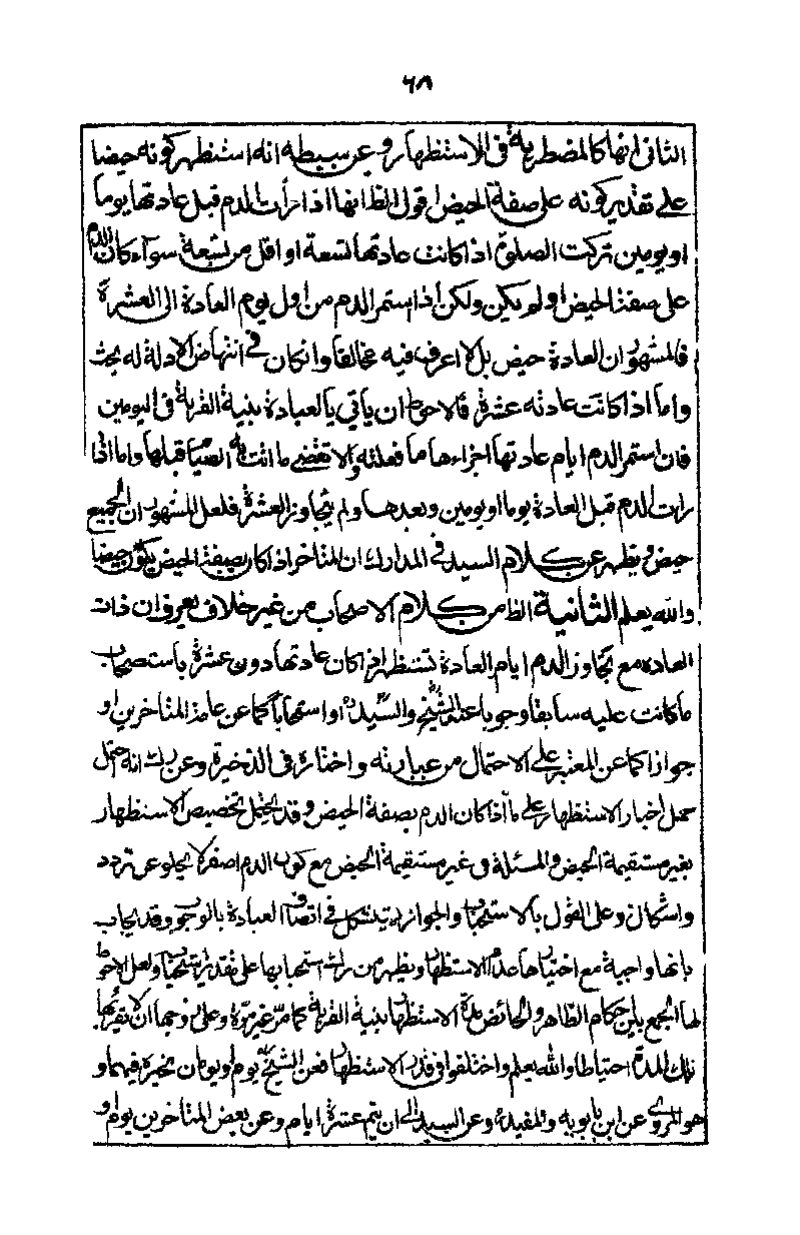 ٦٨
الثانى انها كالمضطربة فى الاستظهار وعن بسيطه انه استظهر كونه حيضا
على تقدير كونه على صفة الحيض اقول الظ انها اذا رأت الدم قبل عادتها يوما
او يومين تركت الصلوة اذا كانت عادتها تسعة او اقل من تسعة سوآء كان الدم
على صفة الحيض او لم يكن ولكن اذا استمر الدم من اول يوم العادة الى العشرة
فالمشهور ان العادة حيض بل لا اعرف فيه مخالفا وان كان فى انتهاض الادلة له بحث
واما اذا كانت عادته عشرة فالاحوط ان يأتى بالعبادة بنية القربة فى اليومين
فان استمر الدم ايام عادتها اجزاءها ما فعلته ولا تقضى ما اتت به الصيام قبلها واما اذا
رات الدم قبل العادة يوما او يومين وبعدها ولم يتجاوز العشرة فلعل المشهور ان الجميع
حيض ويظهر عن كلام السيد فى المدارك ان المتاخر اذا كان بصفة الحيض يكون حيضا
والله يعلم الثانية الظ من كلام الاصحاب من غير خلاف يعرف ان ذات
العاده مع تجاوز الدم ايام العادة تستظهر اذا كان عادتها دون عشرة باستصحاب
ما كانت عليه سابقا وجوبا عند الشيخ والسيد او استحبابا كما عن عامة المتاخرين او
جوازا كما عن المعتبر على الاحتمال من عبارته واختاره فى الذخيرة وعن ك انه احتمل
حمل اخبار الاستظهار على ما اذا كان الدم بصفة الحيض وقد يحتمل تخصيص الاستظهار
بغير مستقيمة الحيض والمسئلة فى غير مستقيمة الحيض مع كون الدم اصفر لا يخلو عن تردد
واشكال وعلى القول بالاستحباب والجواز يستشكل فى اتصاف العبادة بالوجوب وقد يجاب
بانها واجبة مع اختيارها عدم الاستظهار ويظهر من ك استحبابها على تقدير ولعل الاحوط
لها الجمع بين احكام الطاهر والحائض مدة الاستظهار بنية القربة كما مر غير مرة وعلى زوجها ان لا يقربها
تلك المدة احتياطا والله يعلم واختلفوا فى قدر الاستظهار فعن الشيخ يوم او يومان مخيرة فيهما و
هو المروى عن ابن بابويه والمفيد وعن السيد الى ان يتم عشرة ايام وعن بعض المتاخرين يوم او